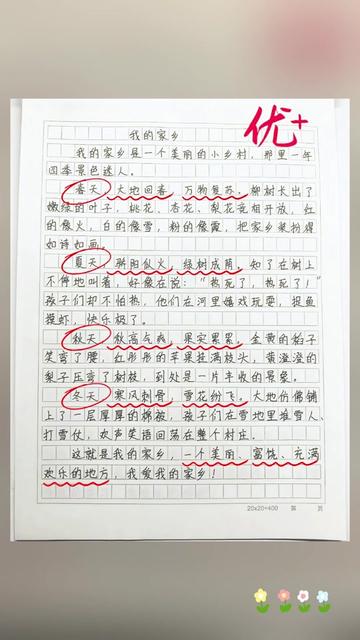 优+
我的家乡
我的家乡是一个美丽的小乡村，那里一年
四季景色迷人。
春天，大地回春，万物复苏，柳树长出了
嫩绿的叶子，桃花、杏花、梨花竞相开放，红
的像火，白的像雪，粉的像霞，把家乡装扮得
如诗如画。
夏天，骄阳似火，绿树成荫，知了在树上
不停地叫着，好像在说：“热死了，热死了！”
孩子们却不怕热，他们在河里嬉戏玩耍，捉鱼
摸虾，快乐极了。
秋天，秋高气爽，果实累累，金黄的稻子
笑弯了腰，红彤彤的苹果挂满枝头，黄澄澄的
梨子压弯了树枝，到处是一片丰收的景象。
冬天，寒风刺骨，雪花纷飞，大地仿佛铺
上了一层厚厚的棉被，孩子们在雪地里堆雪人、
打雪仗，欢声笑语回荡在整个村庄。
这就是我的家乡，一个美丽、富饶、充满
欢乐的地方，我爱我的家乡！
20×20=400 第 页